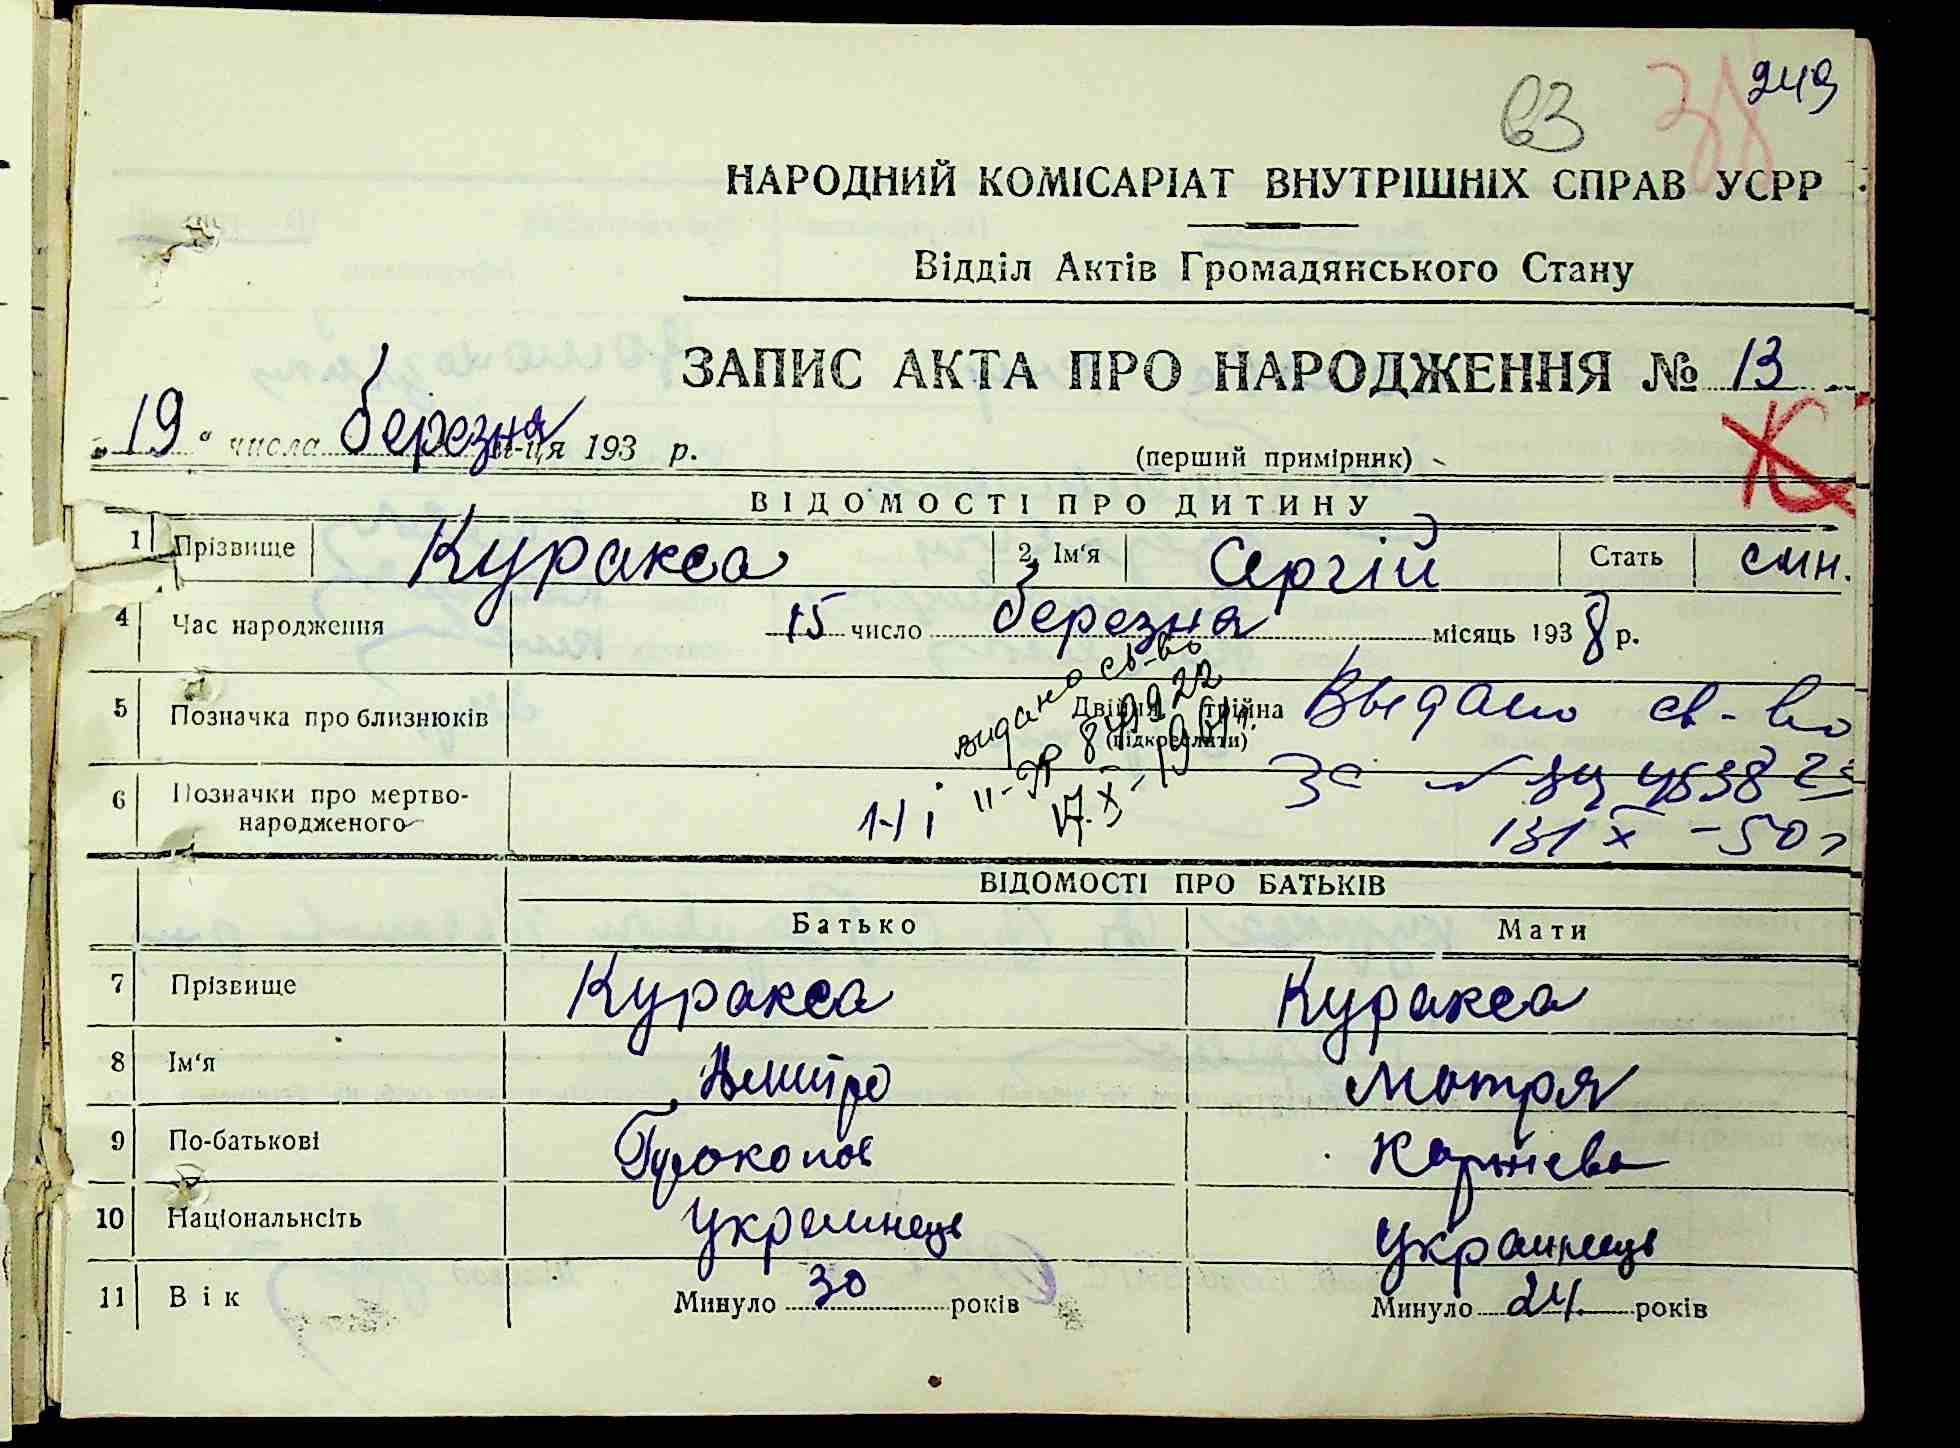 249
63
38
НАРОДНИЙ КОМІСАРІАТ ВНУТРІШНІХ СПРАВ УСРР
Відділ Актів Громадянського Стану
ЗАПИС АКТА ПРО НАРОДЖЕННЯ № 13
„19“ числа березня м-ця 193 р.
(перший примірник)
ВІДОМОСТІ ПРО ДИТИНУ
1 Прізвище Куракса 2 Ім‘я Сергій Стать син.
4 Час народження 15 число березня місяць 1938 р.
5 Позначка про близнюків Двійня, трійна
(підкреслити)
видано св-во
17.X-1961р.
Выдано св-во
За №
131 X -50 г
6 Позначки про мертво-
народженого Ні
ВІДОМОСТІ ПРО БАТЬКІВ
Батько Мати
7 Прізвище Куракса Куракса
8 Ім‘я Дмитро Мотря
9 По-батькові Прокопов
10 Національнсіть Украинець Украинець
11 Вік Минуло 30 років Минуло 24 років